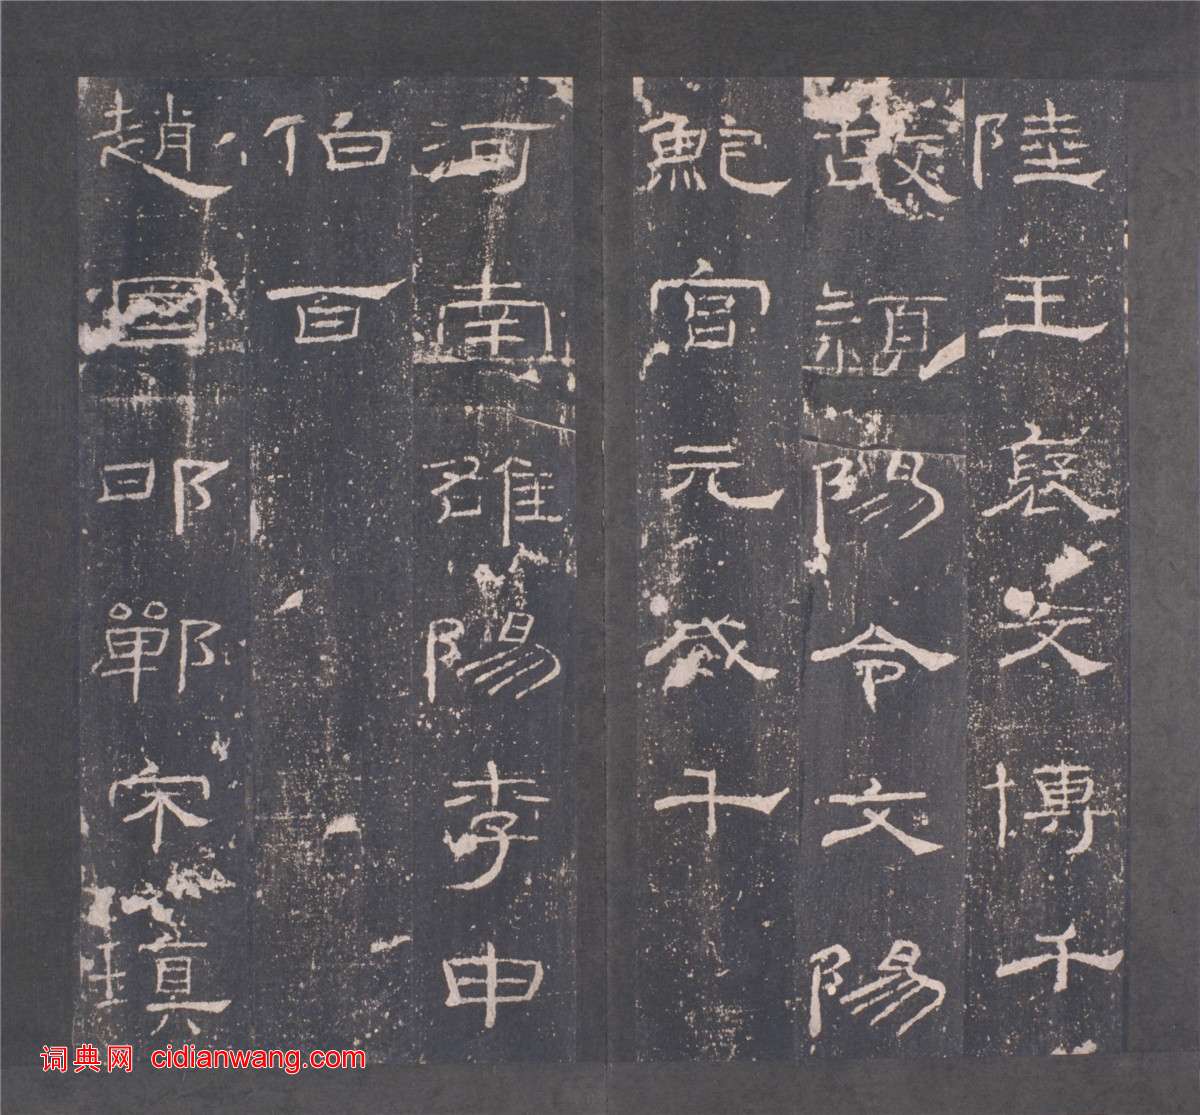 陸王褒文博千
故潁陽令文陽
鮑宮元威千
河南雒陽李申
伯百
趙國邯鄲宋瑱
词典网 cidianwang.com